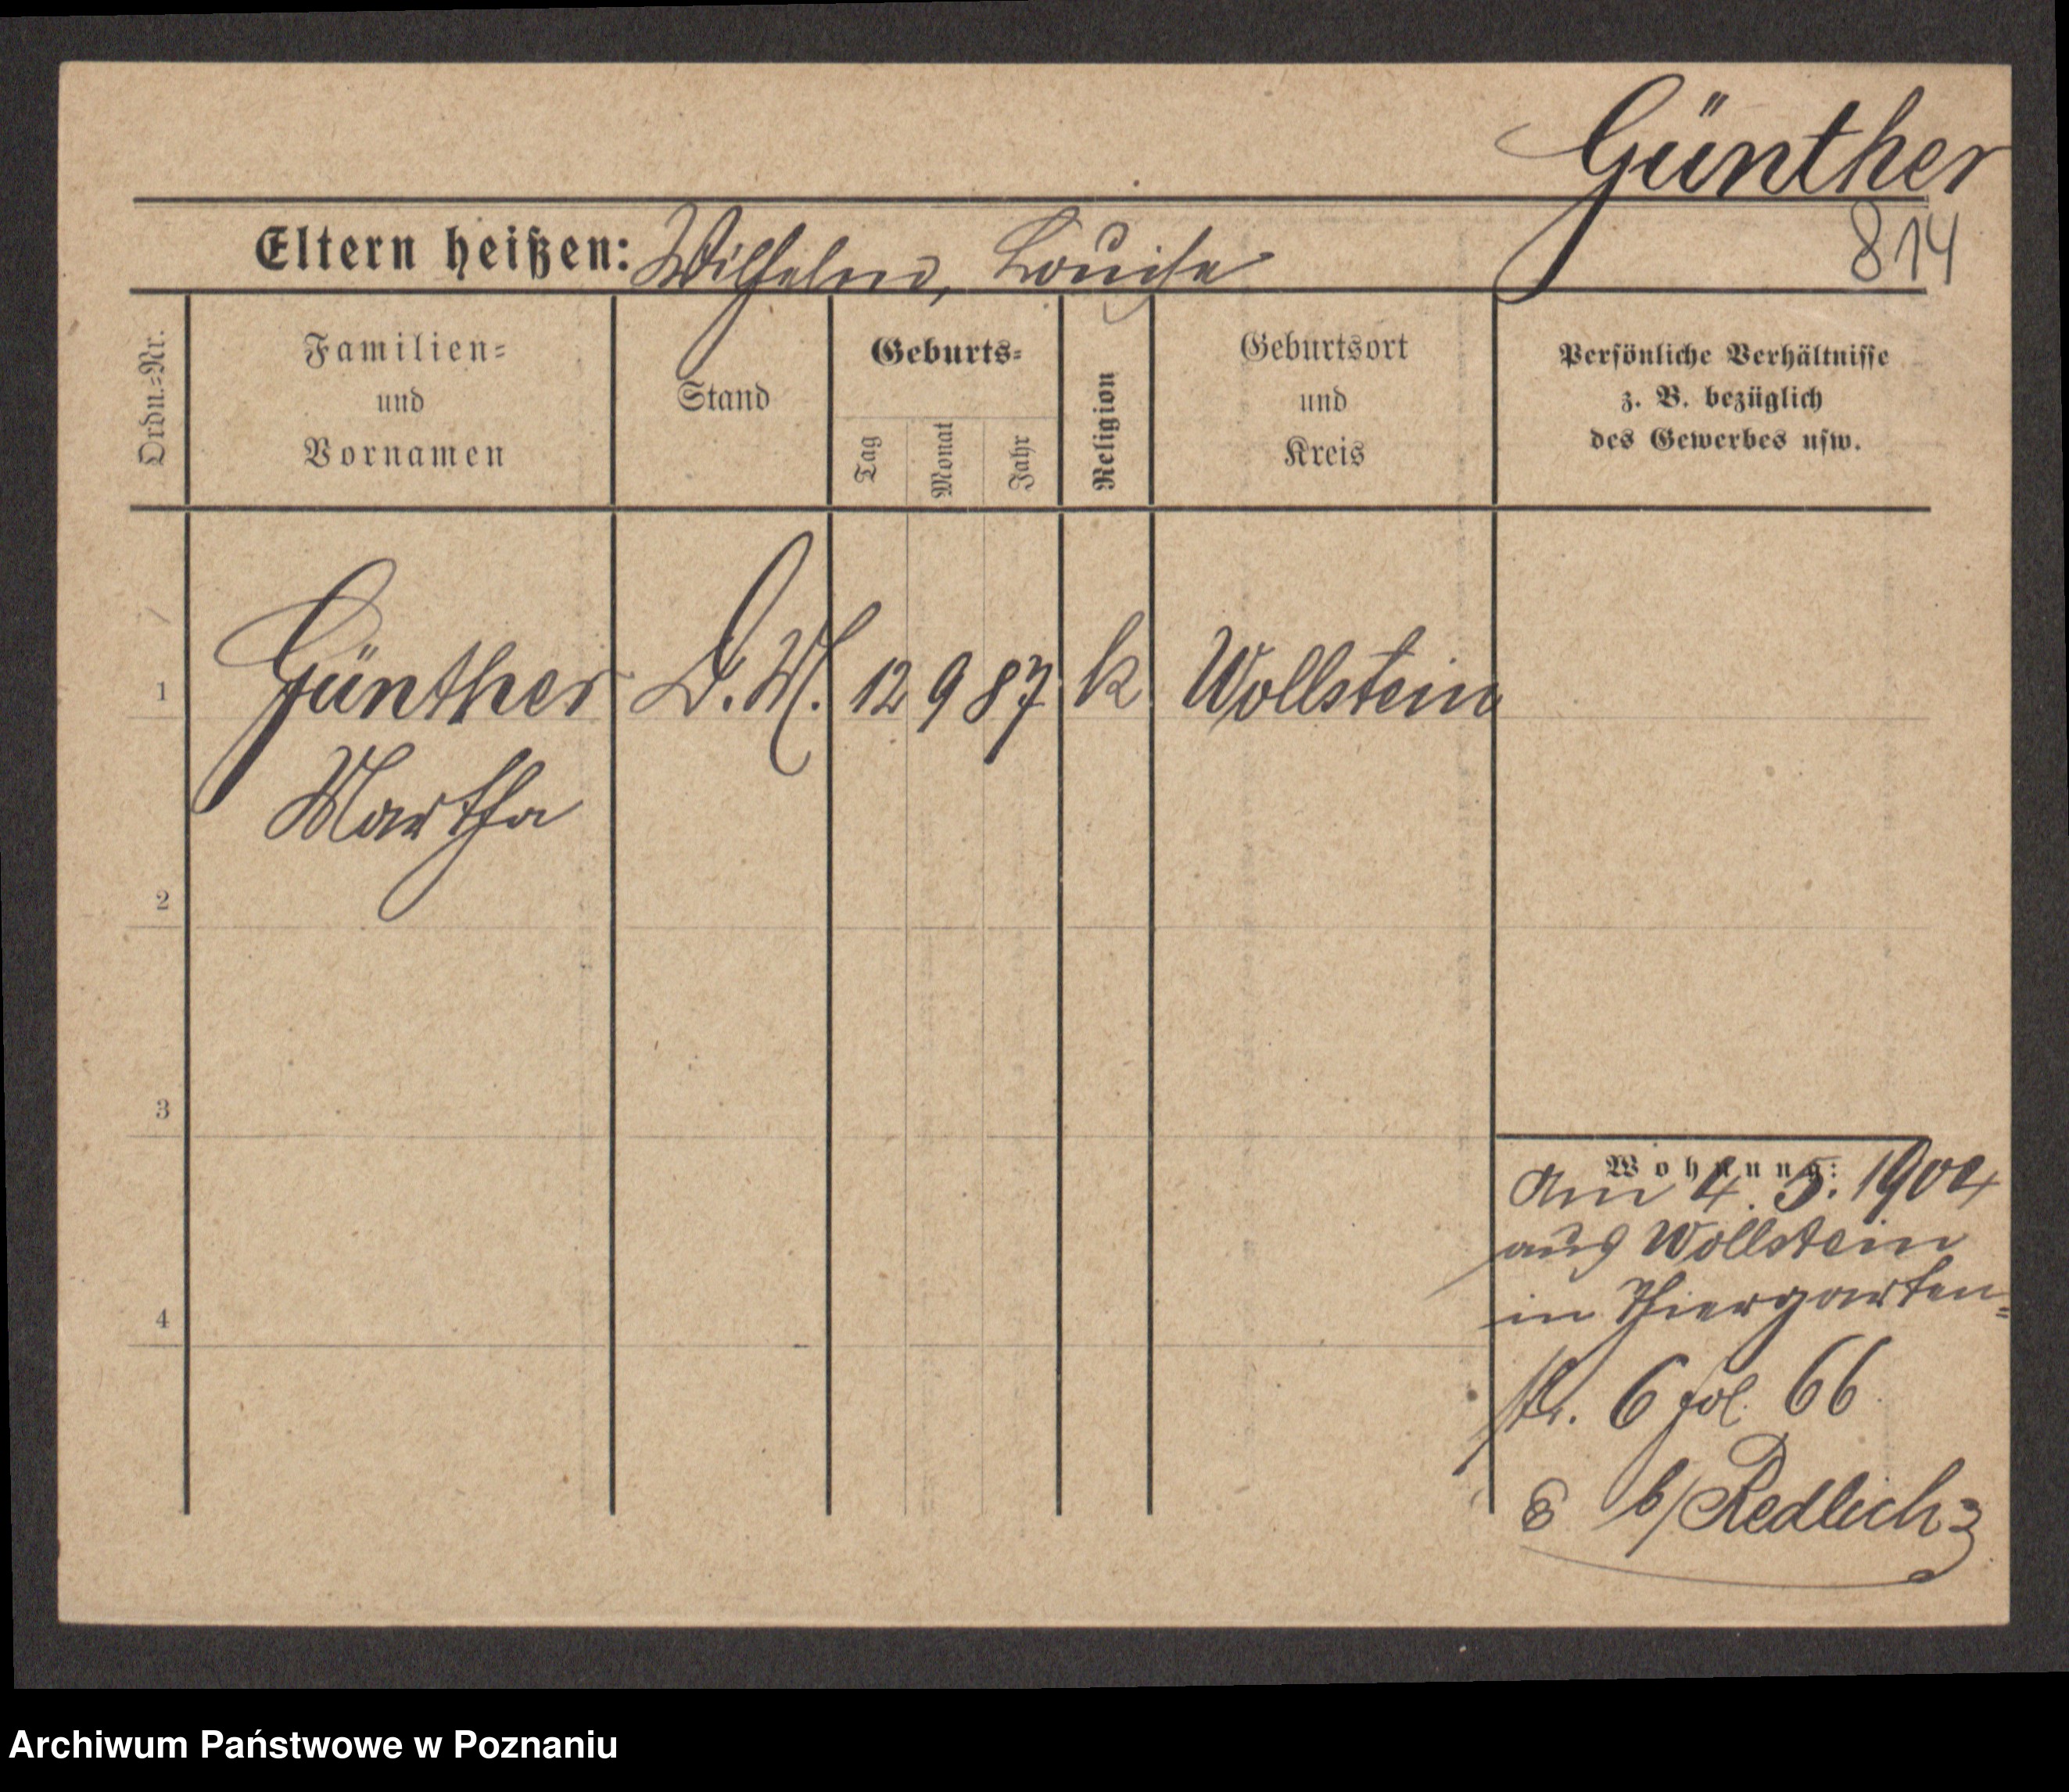 Günther
814
Eltern heißen: Wilhelm, Louise
Ordn.=Nr.
Familien=
und
Vornamen
Stand
Geburts=
Tag
Monat
Jahr
Religion
Geburtsort
und
Kreis
Persönliche Verhältnisse
z. B. bezüglich
des Gewerbes usw.
1 Günther D.M. 12 9 87 k Wollstein
Martha
2
3
4
Wohnung:
Am 4. 5. 1904
aus Wollstein
in Thiergarten=
str. 6 fol. 66
b/ Redlich
Archiwum Państwowe w Poznaniu